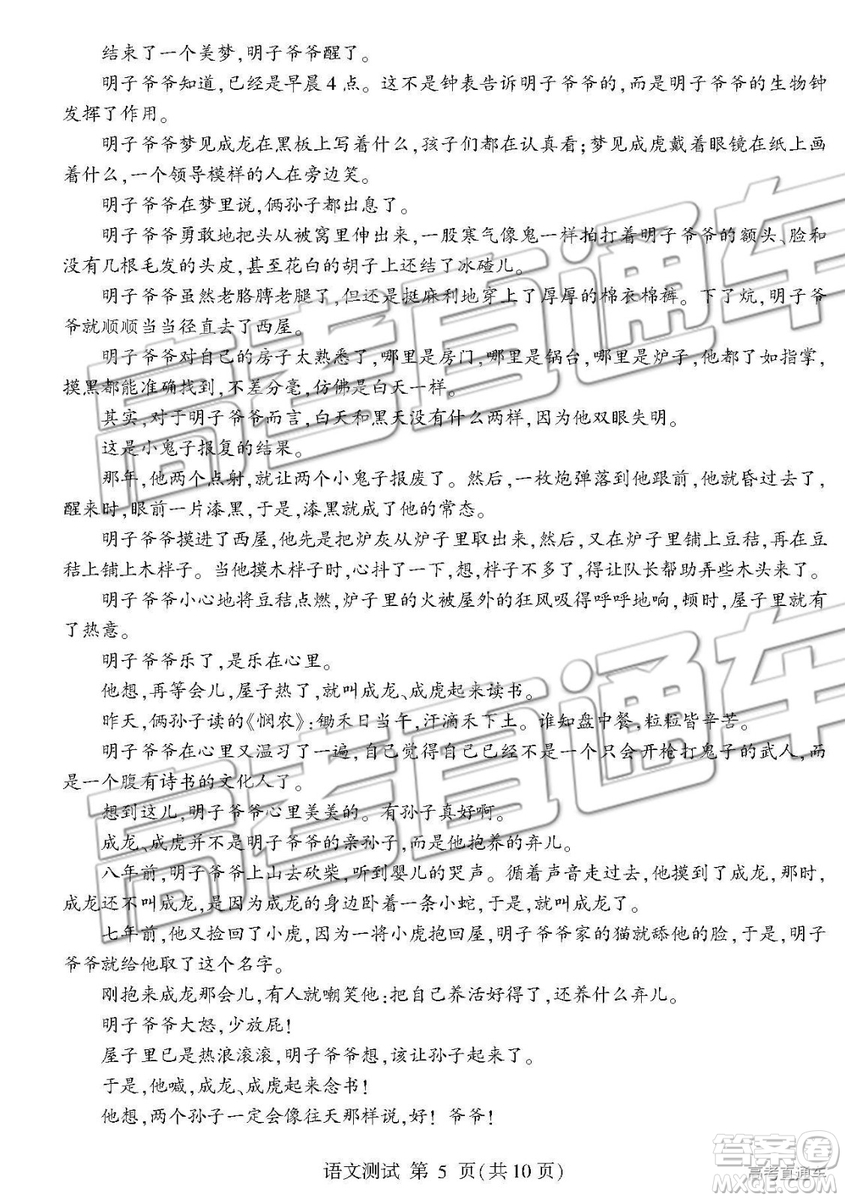 结束了一个美梦,明子爷爷醒了。
明子爷爷知道,已经是早晨4点。这不是钟表告诉明子爷爷的,而是明子爷爷的生物钟
发挥了作用。
明子爷爷梦见成龙在黑板上写着什么,孩子们都在认真看;梦见成虎戴着眼镜在纸上画
着什么,一个领导模样的人在旁边笑。
明子爷爷在梦里说,俩孙子都出息了。
明子爷爷勇敢地把头从被窝里伸出来,一股寒气像鬼一样拍打着明子爷爷的额头、脸和
没有几根毛发的头皮,甚至花白的胡子上还结了冰碴儿。
明子爷爷虽然老胳膊老腿了,但还是挺麻利地穿上了厚厚的棉衣棉裤。下了炕,明子爷
爷就顺顺当当径直去了西屋。
明子爷爷对自己的房子太熟悉了,哪里是房门,哪里是锅台,哪里是炉子,他都了如指掌,
摸黑都能准确找到,不差分毫,仿佛是白天一样。
其实,对于明子爷爷而言,白天和黑天没有什么两样,因为他双眼失明。
这是小鬼子报复的结果。
那年,他两个点射,就让两个小鬼子报废了。然后,一枚炮弹落到他跟前,他就昏过去了,
醒来时,眼前一片漆黑,于是,漆黑就成了他的常态。
明子爷爷摸进了西屋,他先是把炉灰从炉子里取出来,然后,又在炉子里铺上豆秸,再在豆
秸上铺上木柈子。当他摸木柈子时,心抖了一下,想,柈子不多了,得让队长帮助弄些木头来了。
明子爷爷小心地将豆秸点燃,炉子里的火被屋外的狂风吸得呼呼地响,顿时,屋子里就有
了热意。
明子爷爷乐了,是乐在心里。
他想,再等会儿,屋子热了,就叫成龙、成虎起来读书。
昨天,俩孙子读的《悯农》:锄禾日当午,汗滴禾下土。谁知盘中餐,粒粒皆辛苦。
明子爷爷在心里又温习了一遍,自己觉得自己已经不是一个只会开枪打鬼子的武人,而
是一个腹有诗书的文化人了。
想到这儿,明子爷爷心里美美的。有孙子真好啊。
成龙、成虎并不是明子爷爷的亲孙子,而是他抱养的弃儿。
八年前,明子爷爷上山去砍柴,听到婴儿的哭声。循着声音走过去,他摸到了成龙,那时,
成龙还不叫成龙,是因为成龙的身边卧着一条小蛇,于是,就叫成龙了。
七年前,他又捡回了小虎,因为一将小虎抱回屋,明子爷爷家的猫就舔他的脸,于是,明子
爷爷就给他取了这个名字。
刚抱来成龙那会儿,有人就嘲笑他:把自己养活好得了,还养什么弃儿。
明子爷爷大怒,少放屁!
屋子里已是热浪滚滚,明子爷爷想,该让孙子起来了。
于是,他喊,成龙、成虎起来念书!
他想,两个孙子一定会像往天那样说,好!爷爷!
语文测试 第 5 页(共10页)
高考直通车
答案圈
高考直通车
MXQE.COM